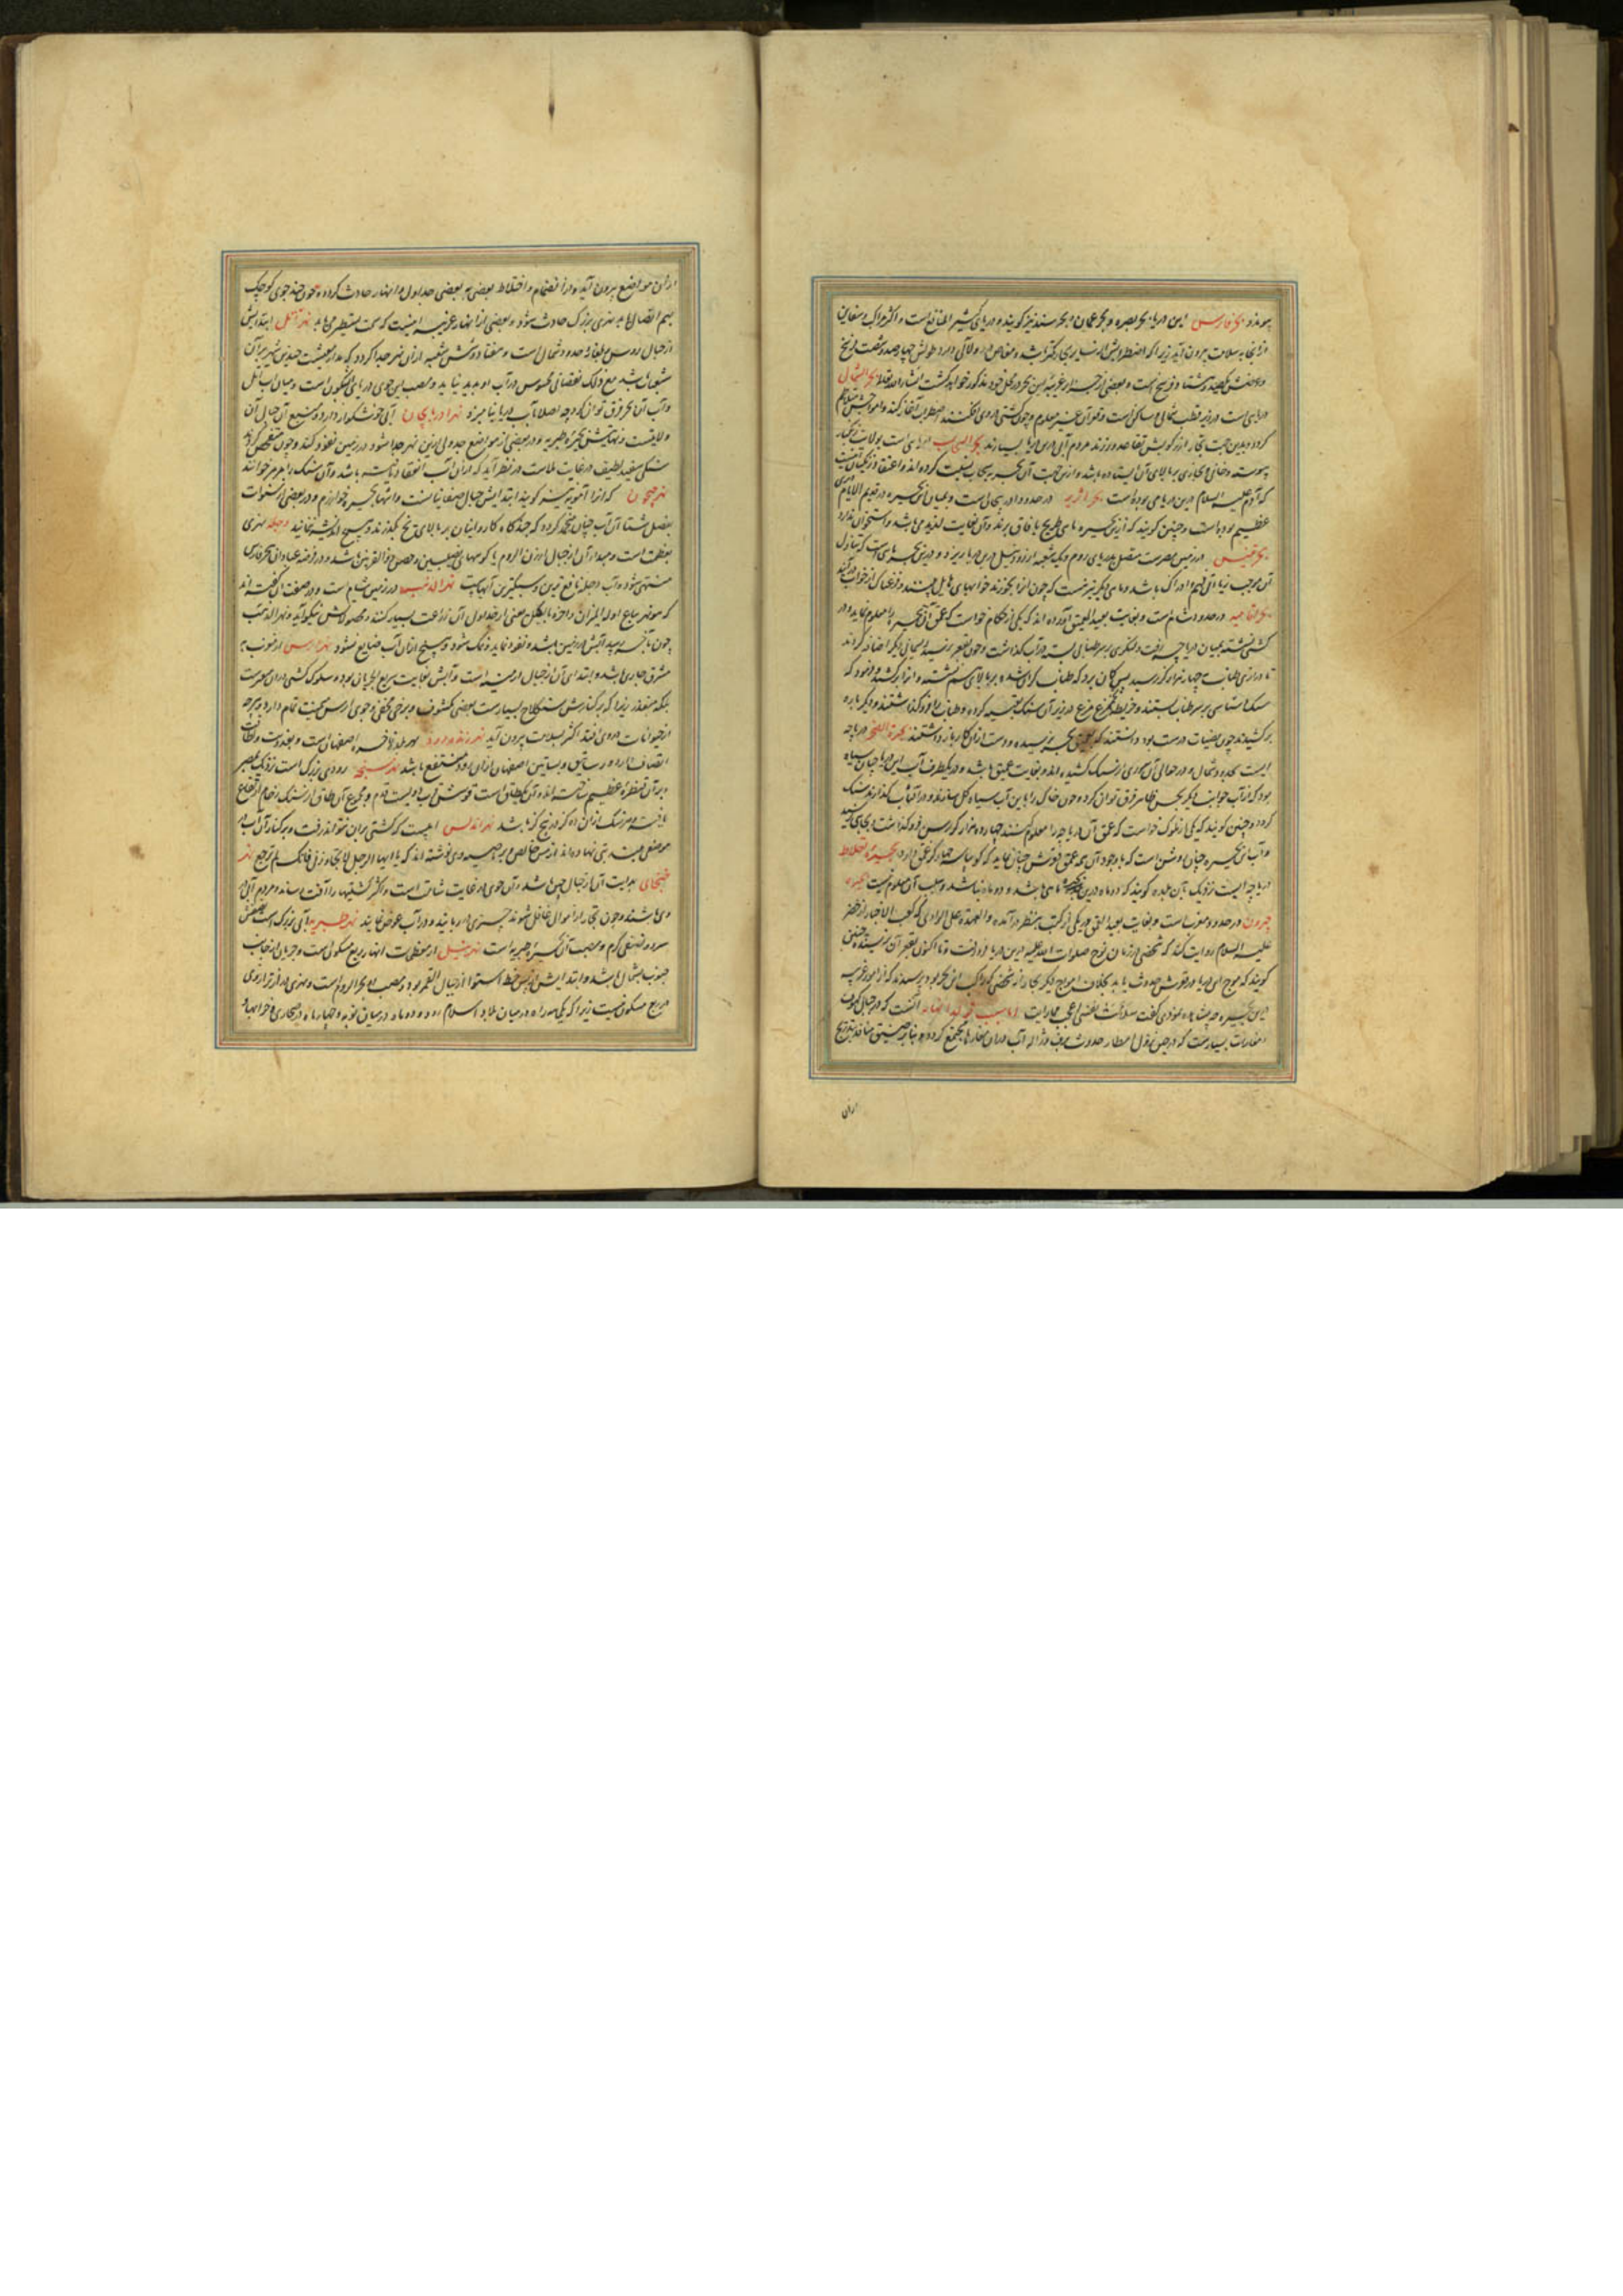 پیوندد بحر فارس این دریا بحر بصره و بحر عمان و بحر سند نیز گویند و دریای کثیر المنافع است و اکثر مراکب و سفاین
از آنجا بسلامت بیرون آید زیرا که اضطرابش از سایر بحار کمتر باشد و مغاص در و لآلی دارد و طولش چهارصد و شصت فرسخ
و عرضش یکصد و هشتاد فرسخ است و بعضی از جزایر غریبه این بحر در محل خود مذکور خواهد گشت انشاء الله تعالی بحر الشمال
دریایی است در زیر قطب شمالی و ساکن است و قعر آن غیر معلوم و چون کشتی در وی افکنند اضطراب آغاز کند و امواجش متلاطم
گردد و بدین جهت تجار از رکوبش تقاعد ورزند مردم آبی درین دریا بسیارند بحر السحاب دریایی است بولایت زنگبار
پیوسته دخانی و بخاری بر بالای آن ایستاده باشد و ازین جهت آن بحر بسحاب نسبت کرده‌اند و اعتقاد زنگیان آنست
که آدم علیه السلام درین دریا می بوده است بحر در حدود آذربیجان است و میان این بحیره در قدیم الایام
عظیم بوده است و چنین گویند که ازین بحیره ماهی طریخ بآفاق برند و آن بغایت لذیذ می باشد و استخوان ندارد
بحر تنیس در زمین مصرست متصل بدریای روم و یک شعبه از رود نیل درین دریا ریزد و درین بحر ماهی است که تناول
آن موجب زیادتی فهم و ادراک باشد و ماهی دیگر نیز هست که چون آنرا بخورند خوابهای هایل بینند و فزعناک از خواب درآیند
در حدود شام است و بغایت بعید العمق آورده اند که یکی از حکام خواست که عمق آن بحیره را معلوم نماید و در
کشتی نشسته بمیان دریاچه رفت و لنگری بر سر طنابی بسته در آب گذاشت و چون بقعر نرسید ریسمانی دیگر اضافه کردند
تا درازی طناب بچهار هزار گز رسید پس گمان برد که طناب گران شده بر بالای هم نشسته و آنرا برکشید و فرمود که
سنگ آسیایی بر سر طناب بستند و در زیر آن سنگ تعبیه کرده و طناب را فرو گذاشتند و دیگر باره
برکشیدند چون بیضیات درست بود دانستند که بعمق بحیره نرسیده و دست از آن کار باز داشتند دریاچه
ایست بحدود شمال و در حوالی آن سدی از سنگ کشیده اند و بغایت عمیق باشد و در یکطرف آب این دریا چنان سیاه
بود که از آب جوانب دیگر بحس ظاهر فرق توان کرد و چون خاک را باین آب سیاه گل سازند و در آفتاب گذارند سنگ
گردد و چنین گویند که یکی از ملوک خواست که عمق آن دریاچه را معلوم کنند چهارده هزار گز رسن فرو گذاشت و بجایی نرسید
و آب این بحیره چنان روشن است که با وجود آن همه عمق قعرش چنان نماید که گویا سه چهار گز عمق دارد بحیره خلاط
دریاچه ایست نزدیک بآن بلده گویند که ده ماه درین بحیره ماهی باشد و دو ماه نباشد و سبب آن معلوم نیست بحیره
در حدود مغرب است و بغایت بعید العمق و در یکی از کتب بنظر درآمده و العهدة علی الراوی که کعب الاخبار از خضر
علیه السلام روایت کند که شخصی در زمان نوح صلوات الله علیه درین دریا فرو رفت و تا اکنون بقعر آن نرسیده و چنین
گویند که موج این دریا در قعرش حدوث یابد بخلاف امواج دیگر بحار از شخصی که راکب این بحر بود پرسیدند که از امور غریبه
درین بحیره چه مشاهده نمودی گفت سلامت نفسی اعجب ما رایت اما سبب تولد انهار آنست که در جبال کهوف
و مغارات بسیارست که در حین نزول امطار و حدوث برف و ژاله آب در آن مغارها مجتمع گردد و بنابر ضیق منافذ بتدریج
از آن
از آن مواضع بیرون آید و از انضمام و اختلاط بعضی به بعضی جداول و انهار حادث گردد و چون چند جوی کوچک
بهم اتصال یابد نهری بزرگ حادث شود و بعضی از انهار غریبه اینست که سمت تسطیر می یابد نهر اتل ابتدایش
از جبال روس و بلغار و حدود شمال است و هفتاد و شش شعبه از آن نهر جدا گردد که مدار معیشت چندین شهر بر آن
شعبها باشد مع ذلک نقصانی محسوس در آب او پدید نیاید و مصب این جوی دریای آبسکون است و میان آب اتل
و آب آن بحر فرق توان کرد و چه اصلا با آب دریا نیامیزد نهر آذربایجان آبی خوشگوار دارد و منبع آن جبال آن
ولایتست و نهایتش بحیره طبریه و در بعضی از مواضع جدولی ازین نهر جدا شود و در زمین نفوذ کند و چون متفحص گردد
سنگی سفید لطیف در غایت ملاست در نظر آید که از آن آب انعقاد یافته باشد و آن سنگ را مرمر خوانند
نهر جیحون که آنرا آمویه نیز گویند ابتدایش جبال صغانیانست و انتها بحیره خوارزم و در بعضی از سنوات
بفصل شتا آن آب چنان منجمد گردد که چند گاه کاروانیان بر بالای یخ بگذرند و هیچ اندیشه ننمایند دجله نهری
بعظمت است و مبدا آن از جبال ارزن الروم یا کوههای نصیبین و حصن ذو القرنین باشد و در فرضه عبادان ببحر فارس
منتهی شود و آب دجله نافع ترین و سبکترین آبهاست نهر الذهب در زمین شام است و در صفت آن گفته اند
که هو نهر یباع اوله بالمیزان و آخره بالکیل یعنی از جداول آن زراعت بسیار کنند و محصولاتش نیکو آید و نهر الذهب
چون بآخر رسد آبش در زمین نفوذ نماید و نمک شود و هیچ از آن آب ضایع نشود نهر ارس از مغرب به
مشرق جاری باشد و ابتدای آن از جبال ارمنیه است و آبش بغایت سریع الجریان بود و سلوک کشتی در آن متعسرست
بلکه متعذر زیرا که بر کنارش سنگلاخ بسیارست بعضی مکشوف و برخی مخفی و جوی ارس میمنت تمام دارد و هر چه
از حیوانات در وی افتد اکثر بسلامت بیرون آید نهر زنده رود نهر بلده فاخره اصفهان است و بعذوبت و لطافت
اتصاف دارد و رساتیق و بساتین اصفهان از آن رود منتفع باشد نهر سنجه رودی بزرگ است نزدیک بمصر
و بر آن قنطره عظیم ساخته اند و آن یک طاقی است قوسش قریب دویست قدم و مجموع آن طاق از سنگ رخام ارتفاع
یافته و هر سنگ از آن ده گز در پنج گز باشد نهر اندلس آبیست که کشتی بر آن نتواند رفت و بر کنار آن آب در
موضعی معین بتی نهاده اند از مس خالص و بر سینه وی نوشته اند که یا ایها الرجل لا تتجاوز نی فانک لم ترجع نهر
بدایت آن از جبال چین باشد و آن جوی در غایت شتاب است و اکثر کشتیها را آفت رساند و مردم آبی در
وی باشند و چون تجار از اموال غافل شوند چیزی در ربایند و در آب غوص نمایند نهر طبریه آبی بزرگ است نصفش
سرد و نصفی گرم و مصب آن بحیره طبریه است نهر نیل از معظمات انهار ربع مسکون است و جریان از جانب
جنوب بشمال باشد و ابتدایش از پس خط استوا از جبال القمر بود و مصب او بحر الروم است و نهری درازتر از وی
در ربع مسکون نیست زیرا که یکماهه راه در میان بلاد اسلام رود و دو ماه در میان نوبه و چهار ماه در صحاری و خرابها و